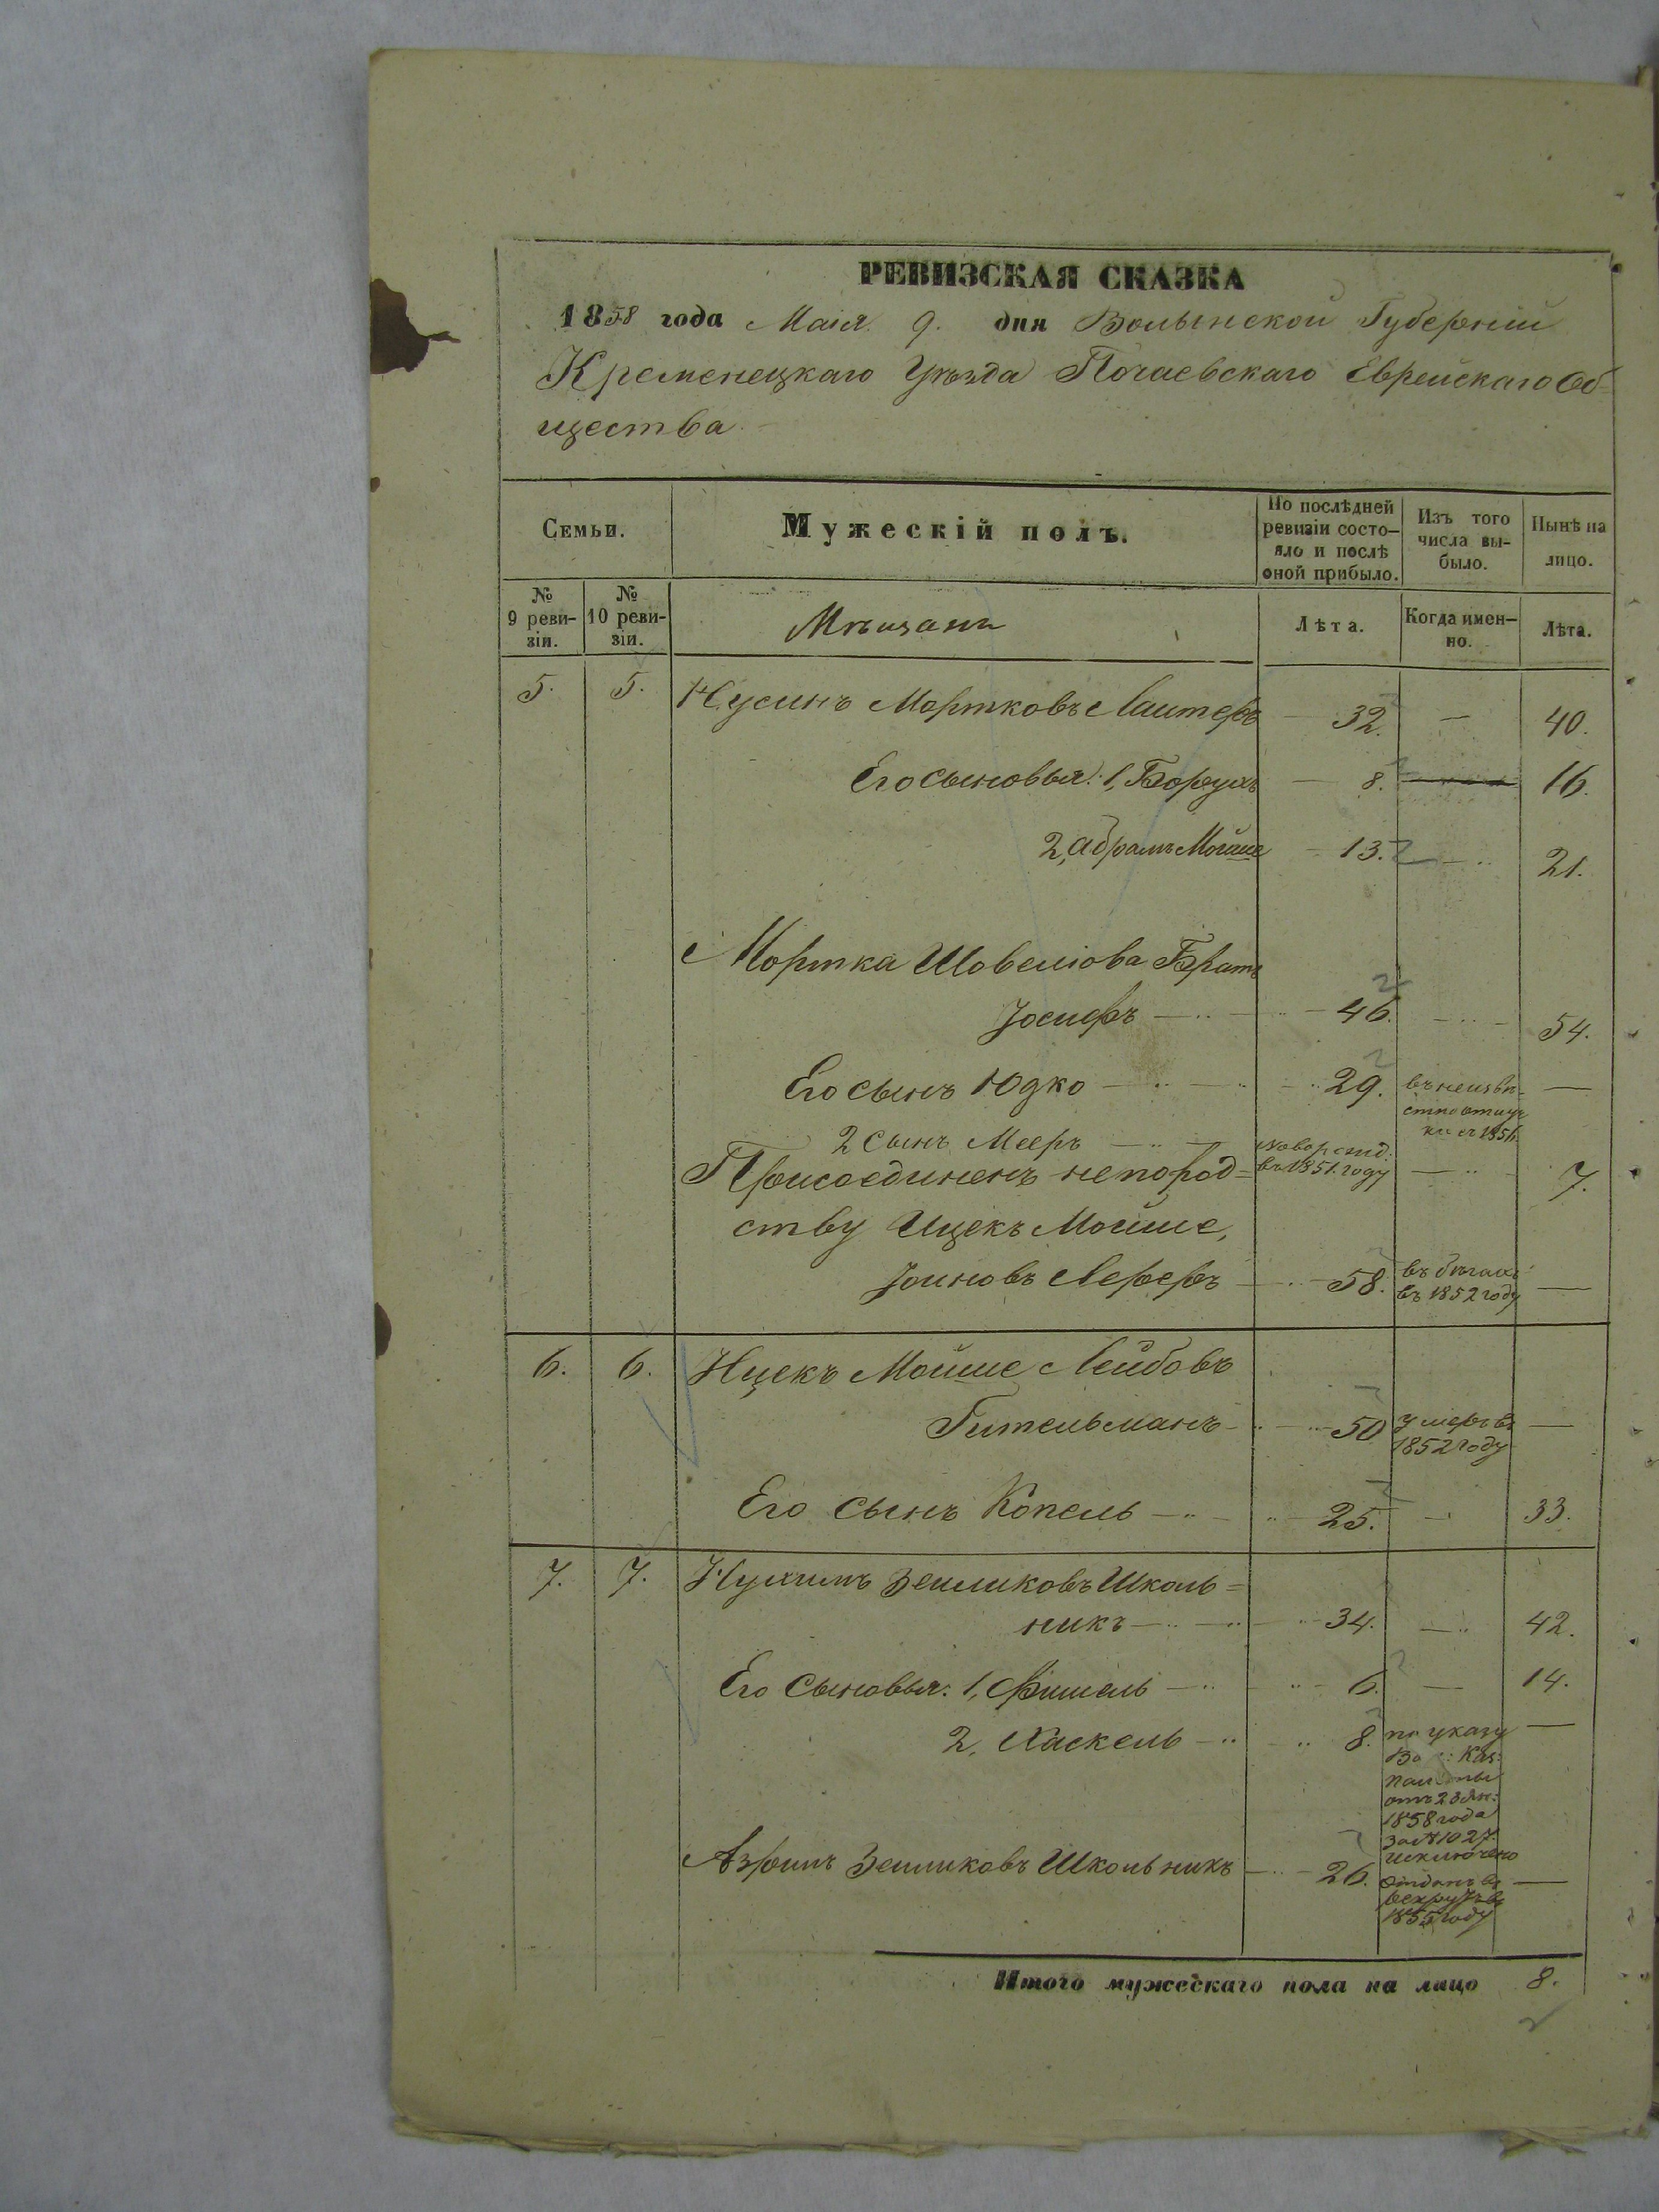 РЕВИЗСКАЯ СКАЗКА
1858 года Маія 9. дня Волынской Губерніи
Кременецкаго Уѣзда Почаевскаго Еврейскаго Об=
щества
Семьи.
Мужескій полъ.
По послѣдней
ревизіи состо-
яло и послѣ
оной прибыло.
Изъ того
числа вы-
было.
Нынѣ на
лицо.
№
9 реви-
зіи.
№
10 реви-
зіи.
Мѣщанъ
Лѣта.
Когда имен-
но.
Лѣта.
5. 5. Нусинъ Мортковъ Лаитеръ — 32. — 40.
Его сыновья: 1, Борухъ — 8. — 16.
2, Абрамъ Мойше — 13. — 21.
Мортка Шовелiова Братъ
Іосифъ — 46. — 54.
Его сынъ Юдко — 29. въ неизвѣ-
стно отлуч
ки съ 1856. —
2 сынъ Мееръ — новорожд.
въ 1851. году — 7.
Присоединенъ непород=
ству Ицекъ Мойше,
Іоиновъ Лереръ — 58. въ бѣгахъ
въ 1852 году —
6. 6. Ицекъ Мойше Лейбовъ
Гительманъ — 50 умеръ въ
1852 году —
Его сынъ Копель — 25. — 33.
7. 7. Нухимъ Зеиликовъ Школь=
никъ — 34. — 42.
Его Сыновья: 1, Фишель — 6. — 14.
2, Хаскель — 8. по указу —
Каз:
отъ 23 Ян:
1858 года
за № 1027.
исключено
Азримъ Зеиликовъ Школьникъ — 26. отданъ въ —
рекруты въ
1855 году
Итого мужескаго пола на лицо 8.